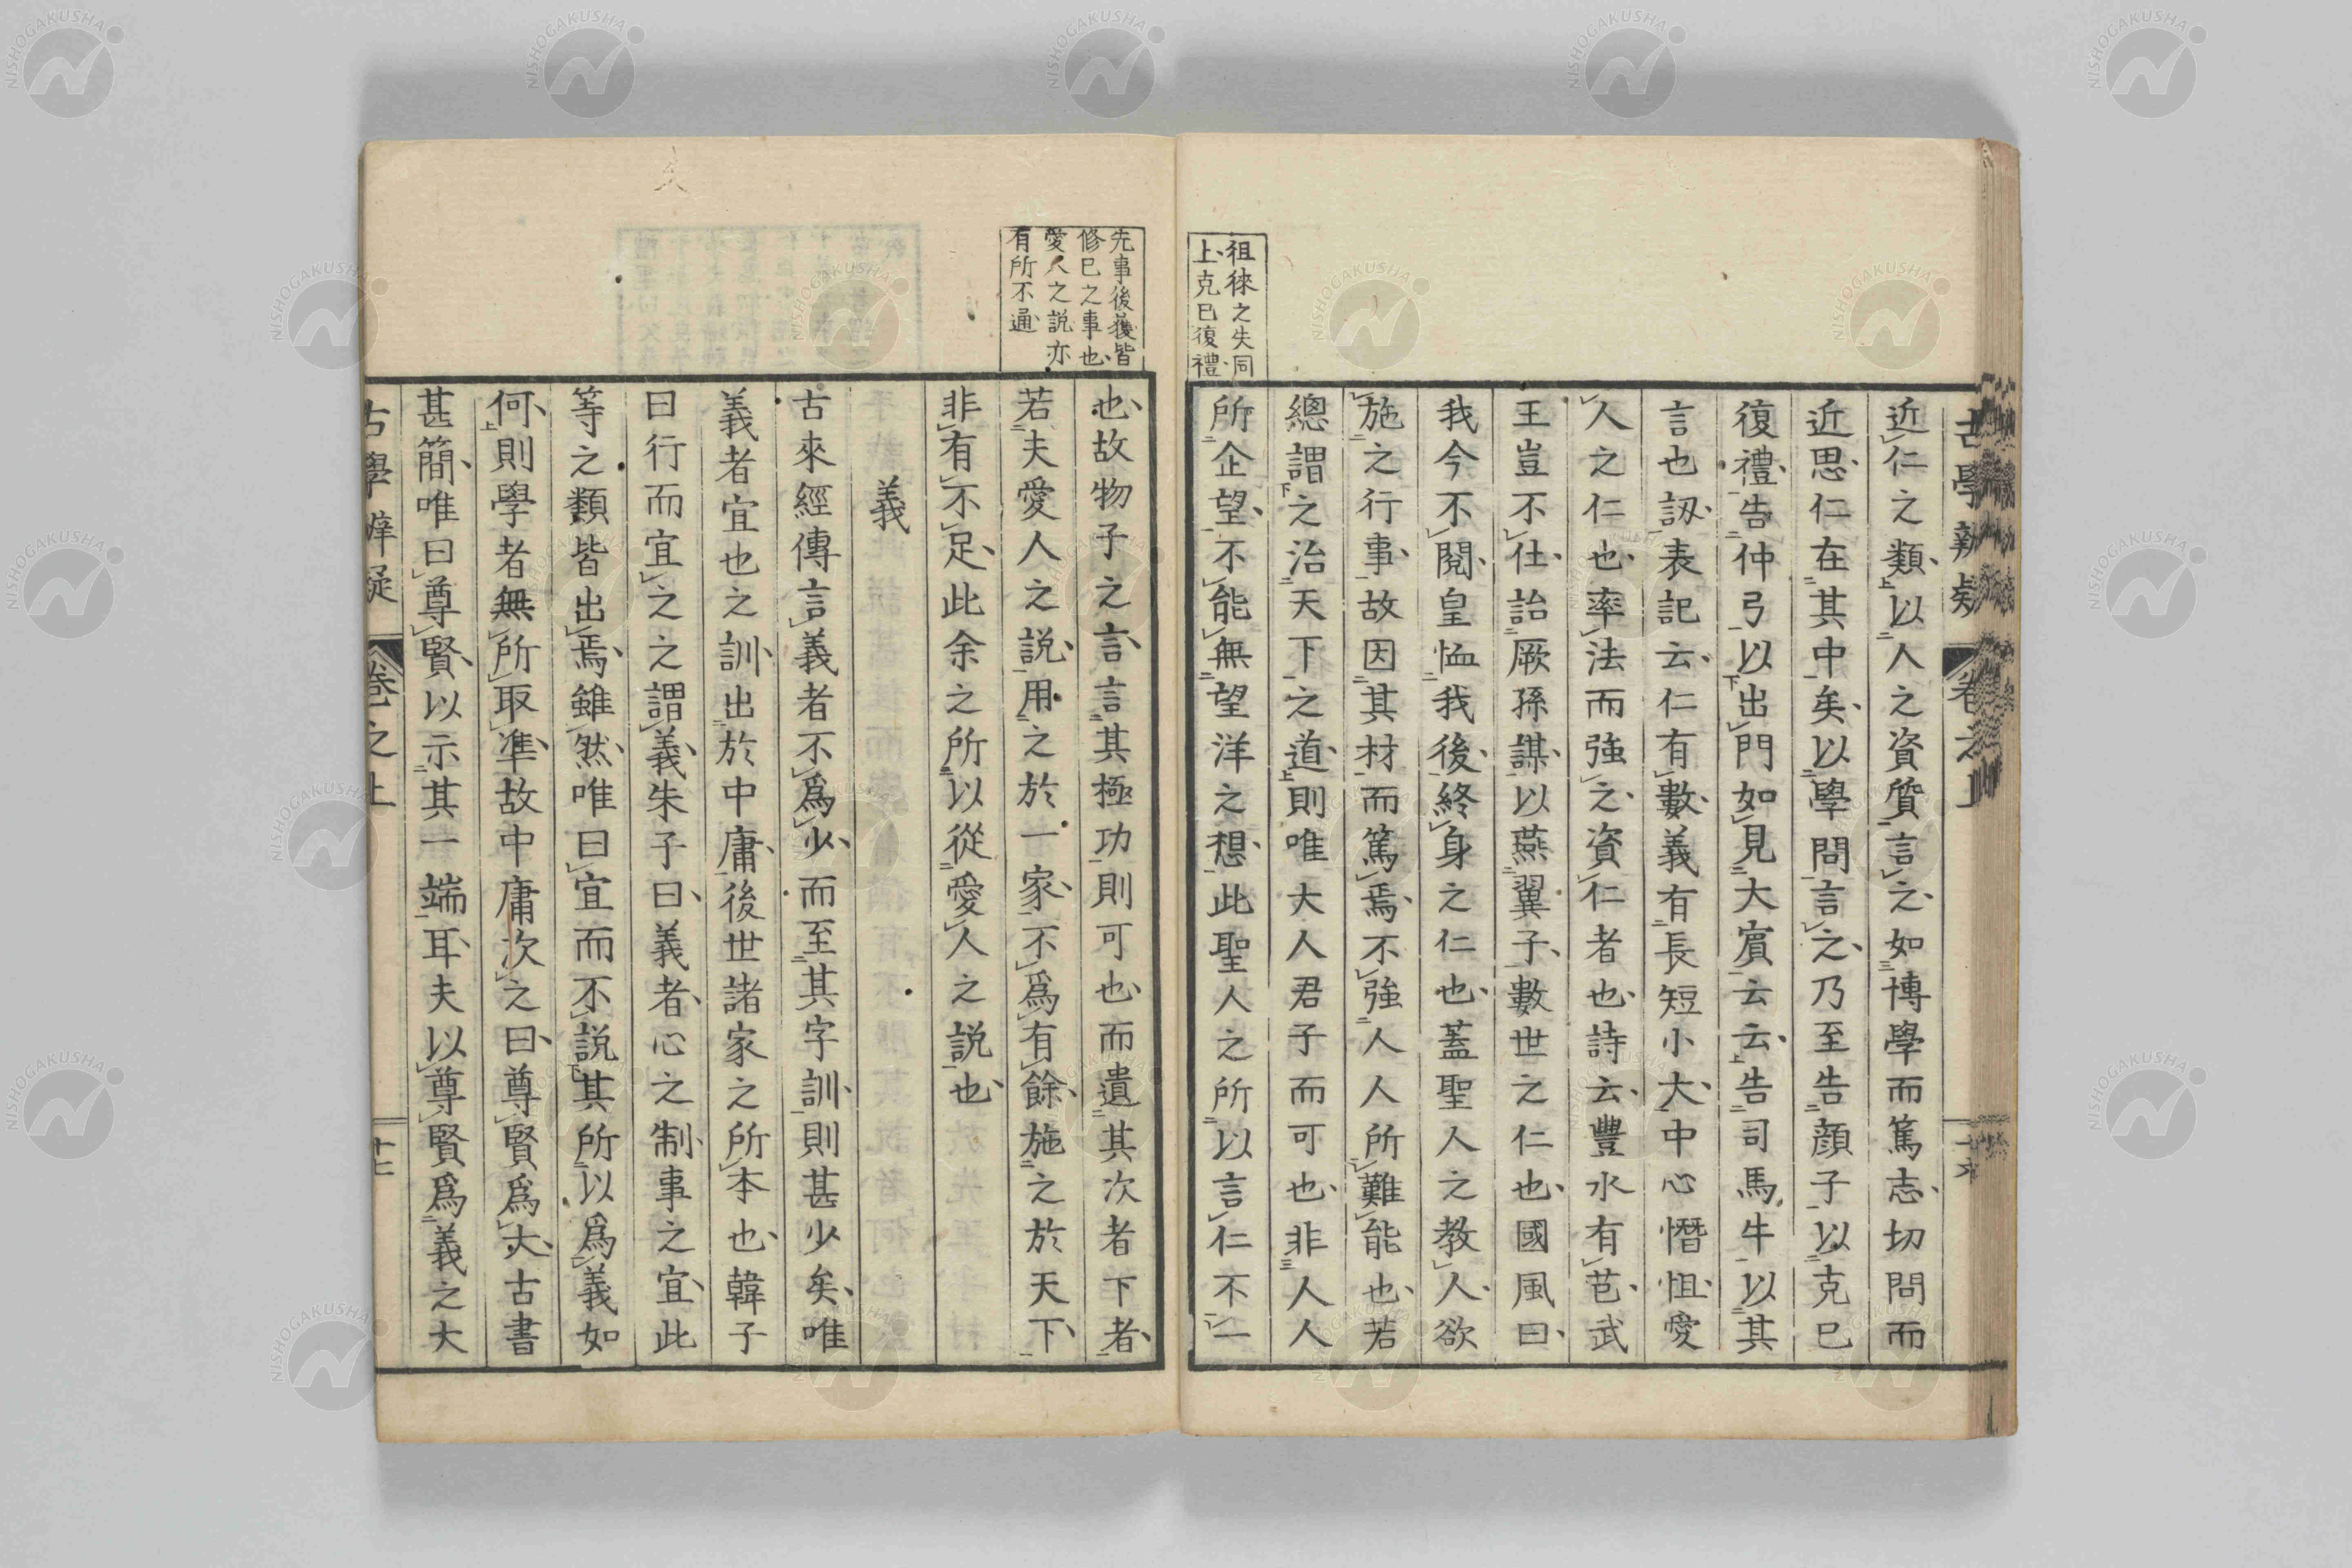 古學辨疑 卷之上 十六
近仁之類以人之資質言之如博學而篤志切問而
近思仁在其中矣以學問言之乃至告顔子以克己
復禮告仲弓以出門如見大賓云云告司馬牛以其
言也訒表記云仁有數義有長短小大中心憯怛愛
人之仁也率法而強之資仁者也詩云豐水有芑武
王豈不仕詒厥孫謀以燕翼子數世之仁也國風曰
我今不閱皇恤我後終身之仁也蓋聖人之教人欲
施之行事故因其材而篤焉不強人人所難能也若
總謂之治天下之道則唯大人君子而可也非人人
所企望不能無望洋之想此聖人之所以言仁不一
徂徠之失同
上克己復禮
也故物子之言言其極功則可也而遺其次者下者
若夫愛人之說用之於一家不爲有餘施之於天下
非有不足此余之所以從愛人之說也
義
古來經傳言義者不爲少而至其字訓則甚少矣唯
義者宜也之訓出於中庸後世諸家之所本也韓子
曰行而宜之之謂義朱子曰義者心之制事之宜此
等之類皆出焉雖然唯曰宜而不說其所以爲義如
何則學者無所取準故中庸次之曰尊賢爲大古書
甚簡唯曰尊賢以示其一端耳夫以尊賢爲義之大
先事後獲皆
修己之事也
愛人之說亦
有所不通
古學辨疑 卷之上 十七
NISHOGAKUSHA